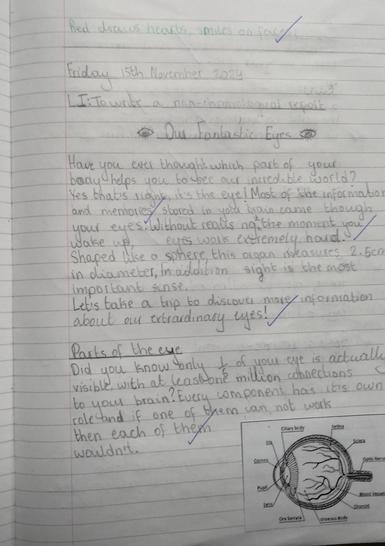 Red draws hearts, smiles on faces
Friday 15th November 2024
LI: To write a non-chronological report
Our Fantastic Eyes
Have you ever thought which part of your
body helps you to see our incredible world?
Yes that's right, it's the eye! Most of the information
and memories stored in your brain came though
your eyes. Without realising, the moment you
wake up, eyes work extremely hard.
Shaped like a sphere, this organ measures 2.5cm
in diameter, In addition sight is the most
important sense.
Let's take a trip to discover more information
about our extrardinary eyes!
Parts of the eye
Did you know only 1/6 of your eye is actually
visible with at least one million connections
to your brain? Every component has it's own
role and if one of them can not work
then each of them
wouldn't.
Ciliary body
Retina
Iris
Sclera
Cornea
Optic Nerve
Pupil
Blood Vessels
Lens
Choroid
Ora Serrata
Vitreous Body